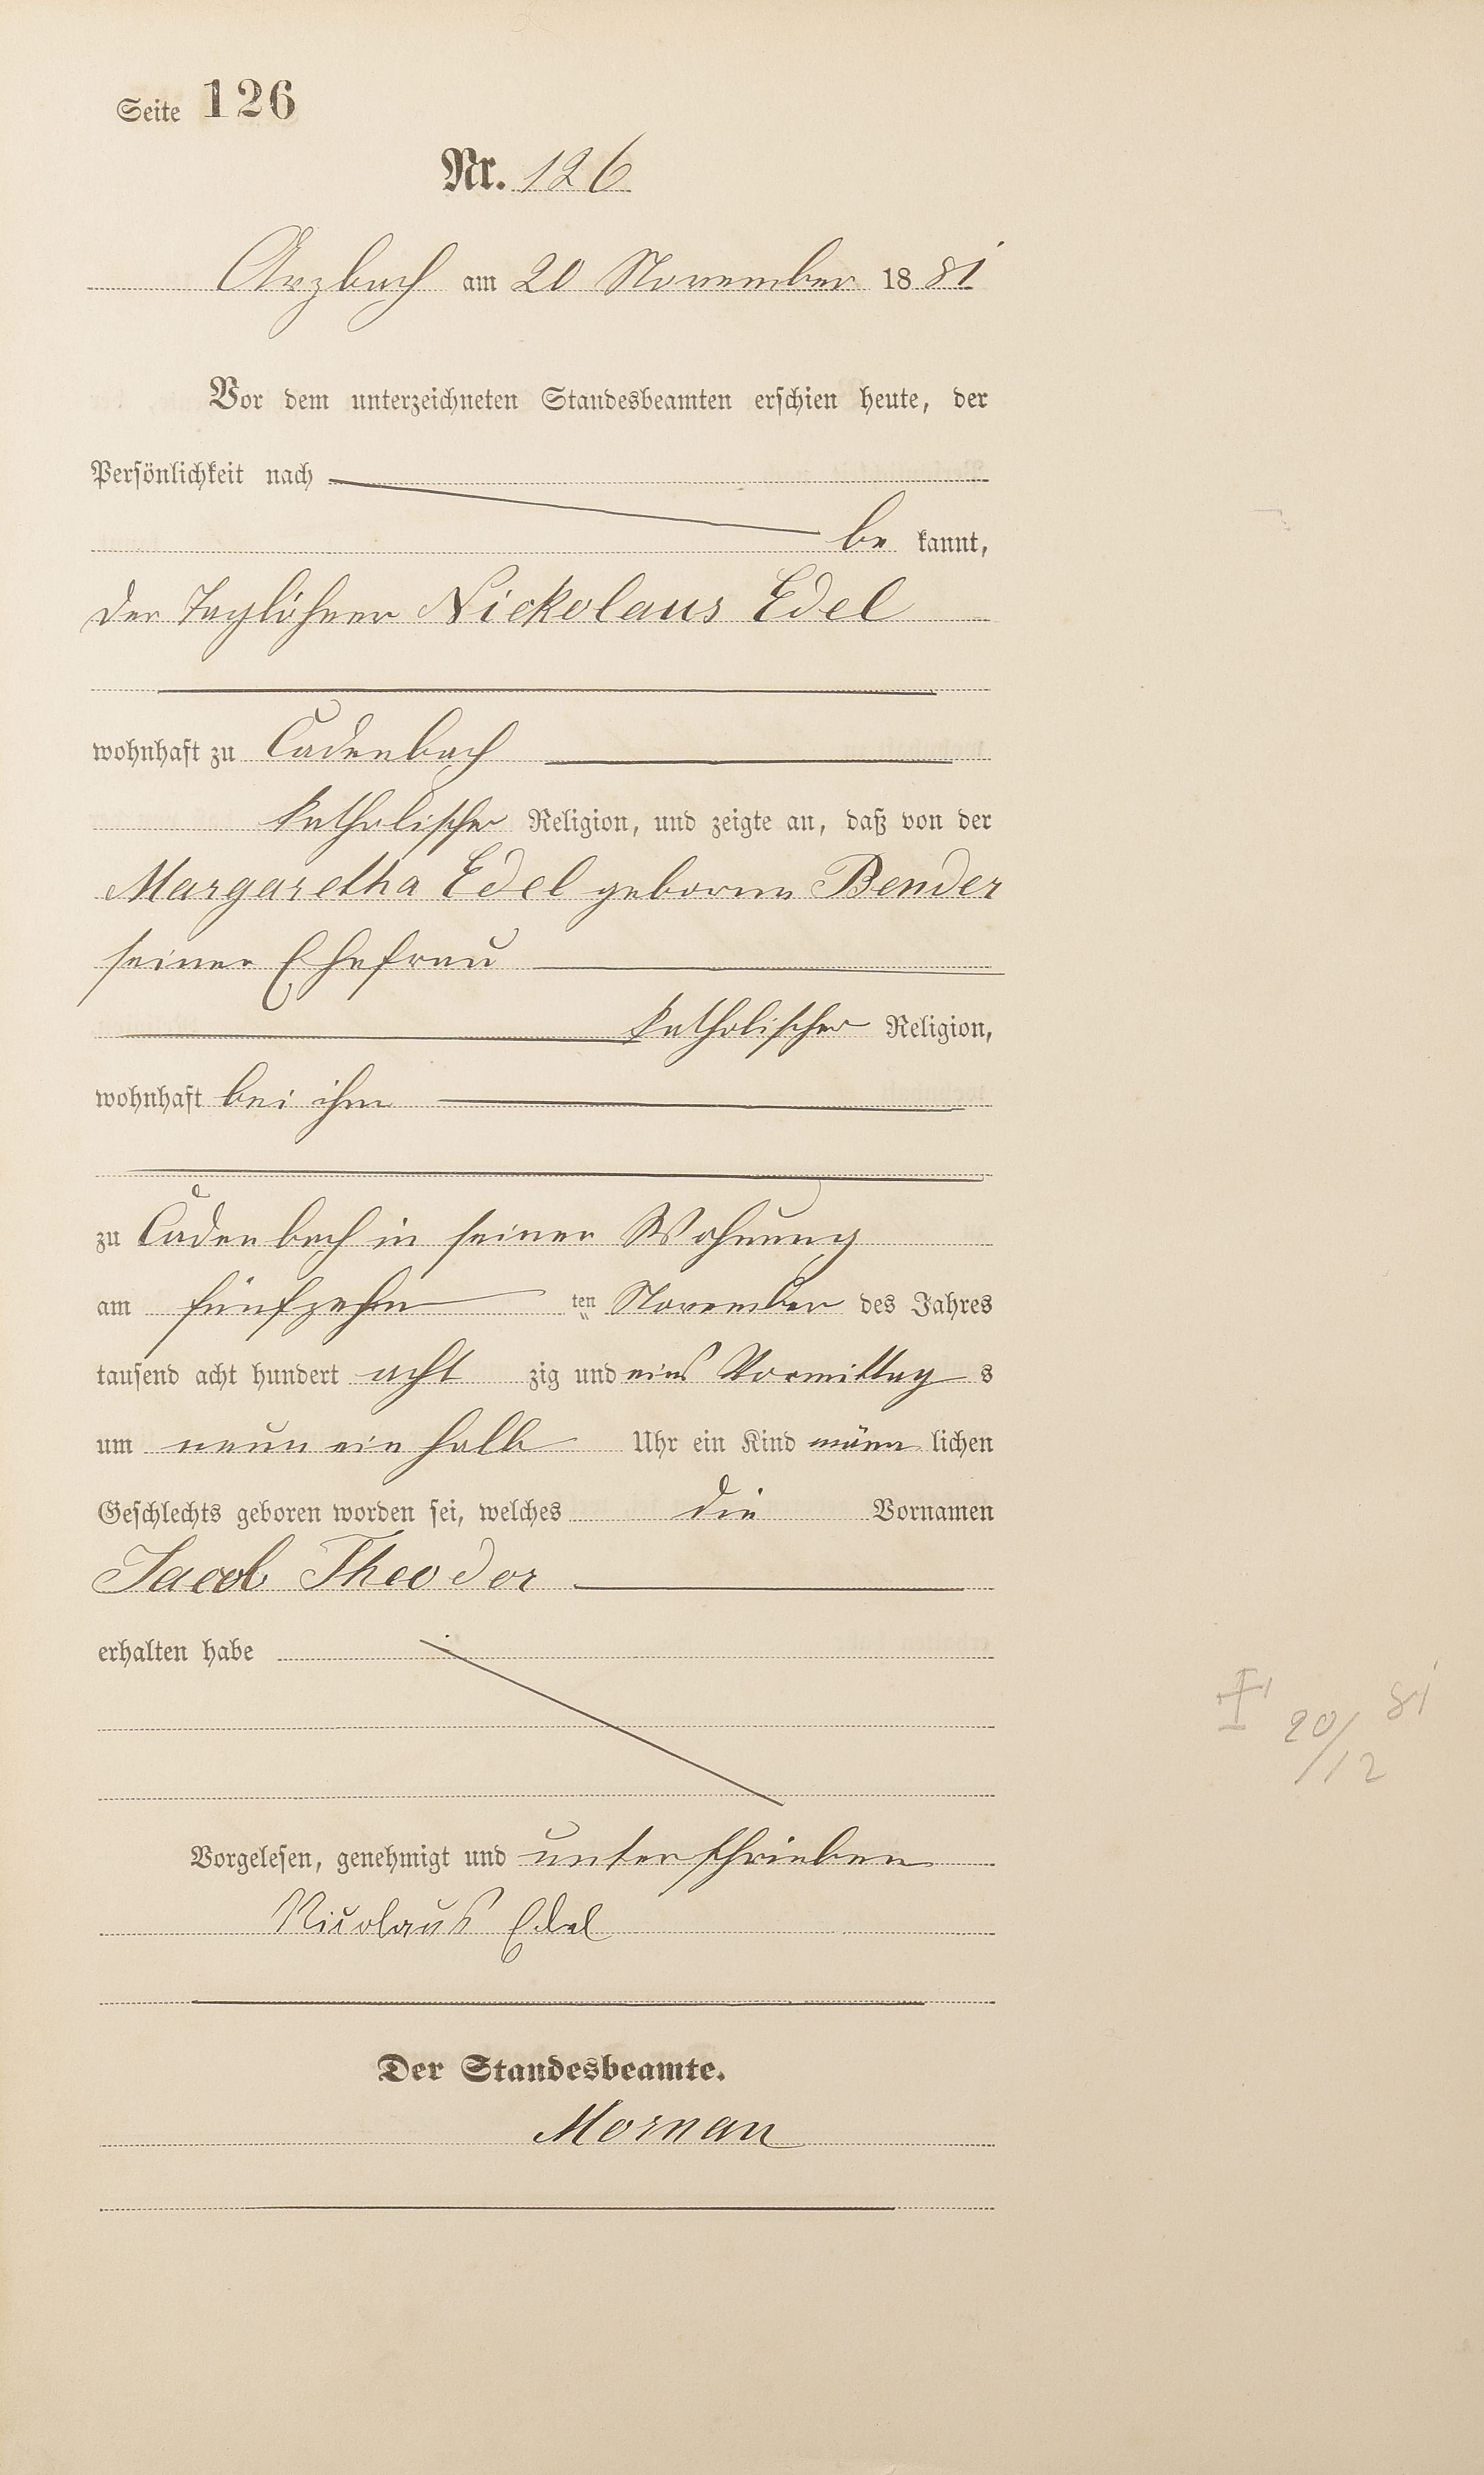 Seite 126
Nr. 126
Arzbach am 20 November 1881
Vor dem unterzeichneten Standesbeamten erschien heute, der
Persönlichkeit nach
be kannt,
der Taglöhner Nickolaus Edel
wohnhaft zu Cadenbach
katholischer Religion, und zeigte an, daß von der
Margaretha Edel geborne Bender
seiner Ehefrau
katholischer Religion,
wohnhaft bei ihm
zu Cadenbach in seiner Wohnung
am fünfzehn ten November des Jahres
tausend acht hundert acht zig und eins Vormittag s
um neun ein halb Uhr ein Kind männ lichen
Geschlechts geboren worden sei, welches die Vornamen
Jacob Theodor
erhalten habe
† 20/12 81
Vorgelesen, genehmigt und unterschrieben
Nicolaus Edel
Der Standesbeamte.